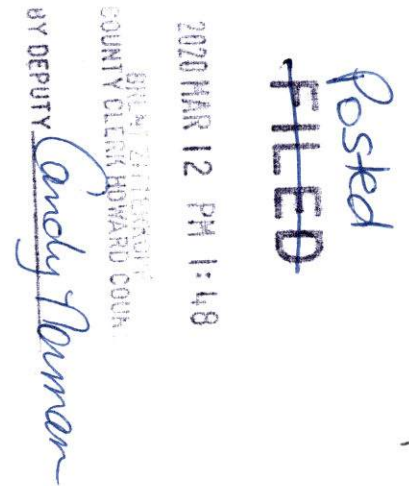 Posted
FILED
2020 MAR 12 PM 1:48
COUNTY CLERK HOWARD COUN
BY DEPUTY Candy Norman